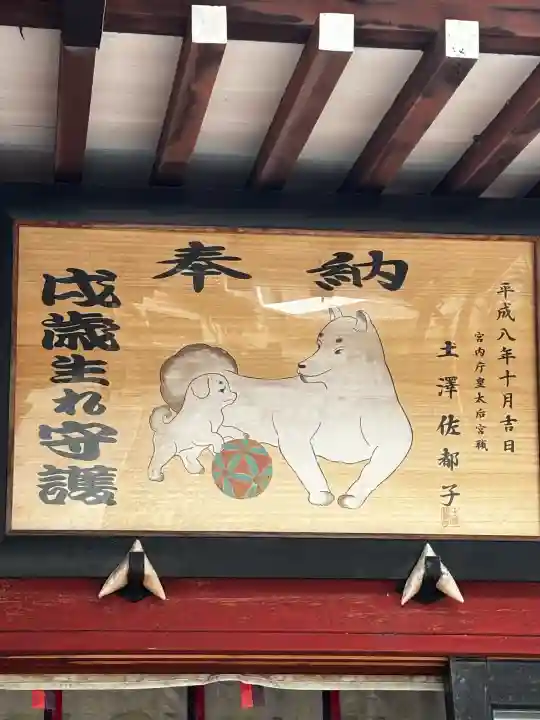 奉納
平成八年十月吉日
宮内庁皇太后宮職
土澤佐都子
戌歳生れ守護